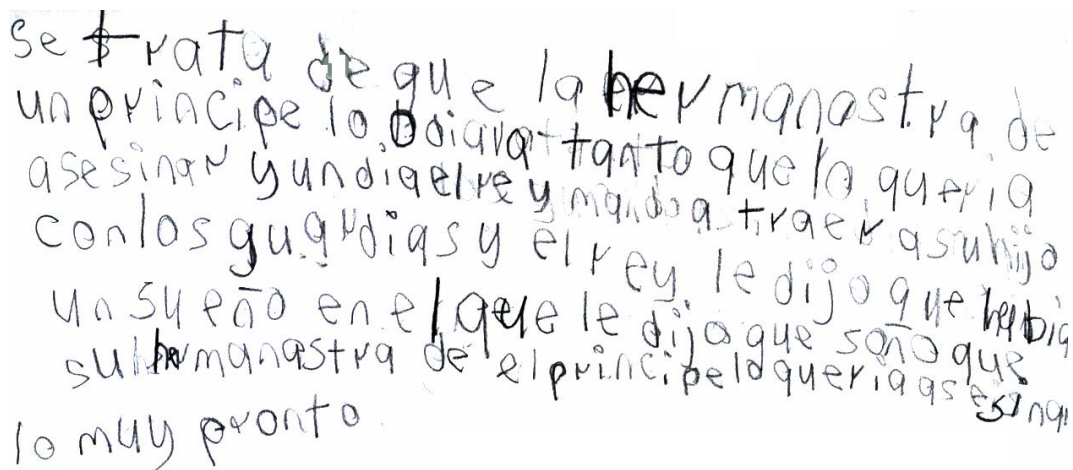 se trata de que la hermanastra de
un principe lo odiara tanto que lo queria
asesinar y undia el rey mando a traer asu hijo
con los guardias y el rey le dijo que habia
un sueño en el que le dijo que soño que
su hermanastra de el principe lo queria asesinar
lo muy pronto